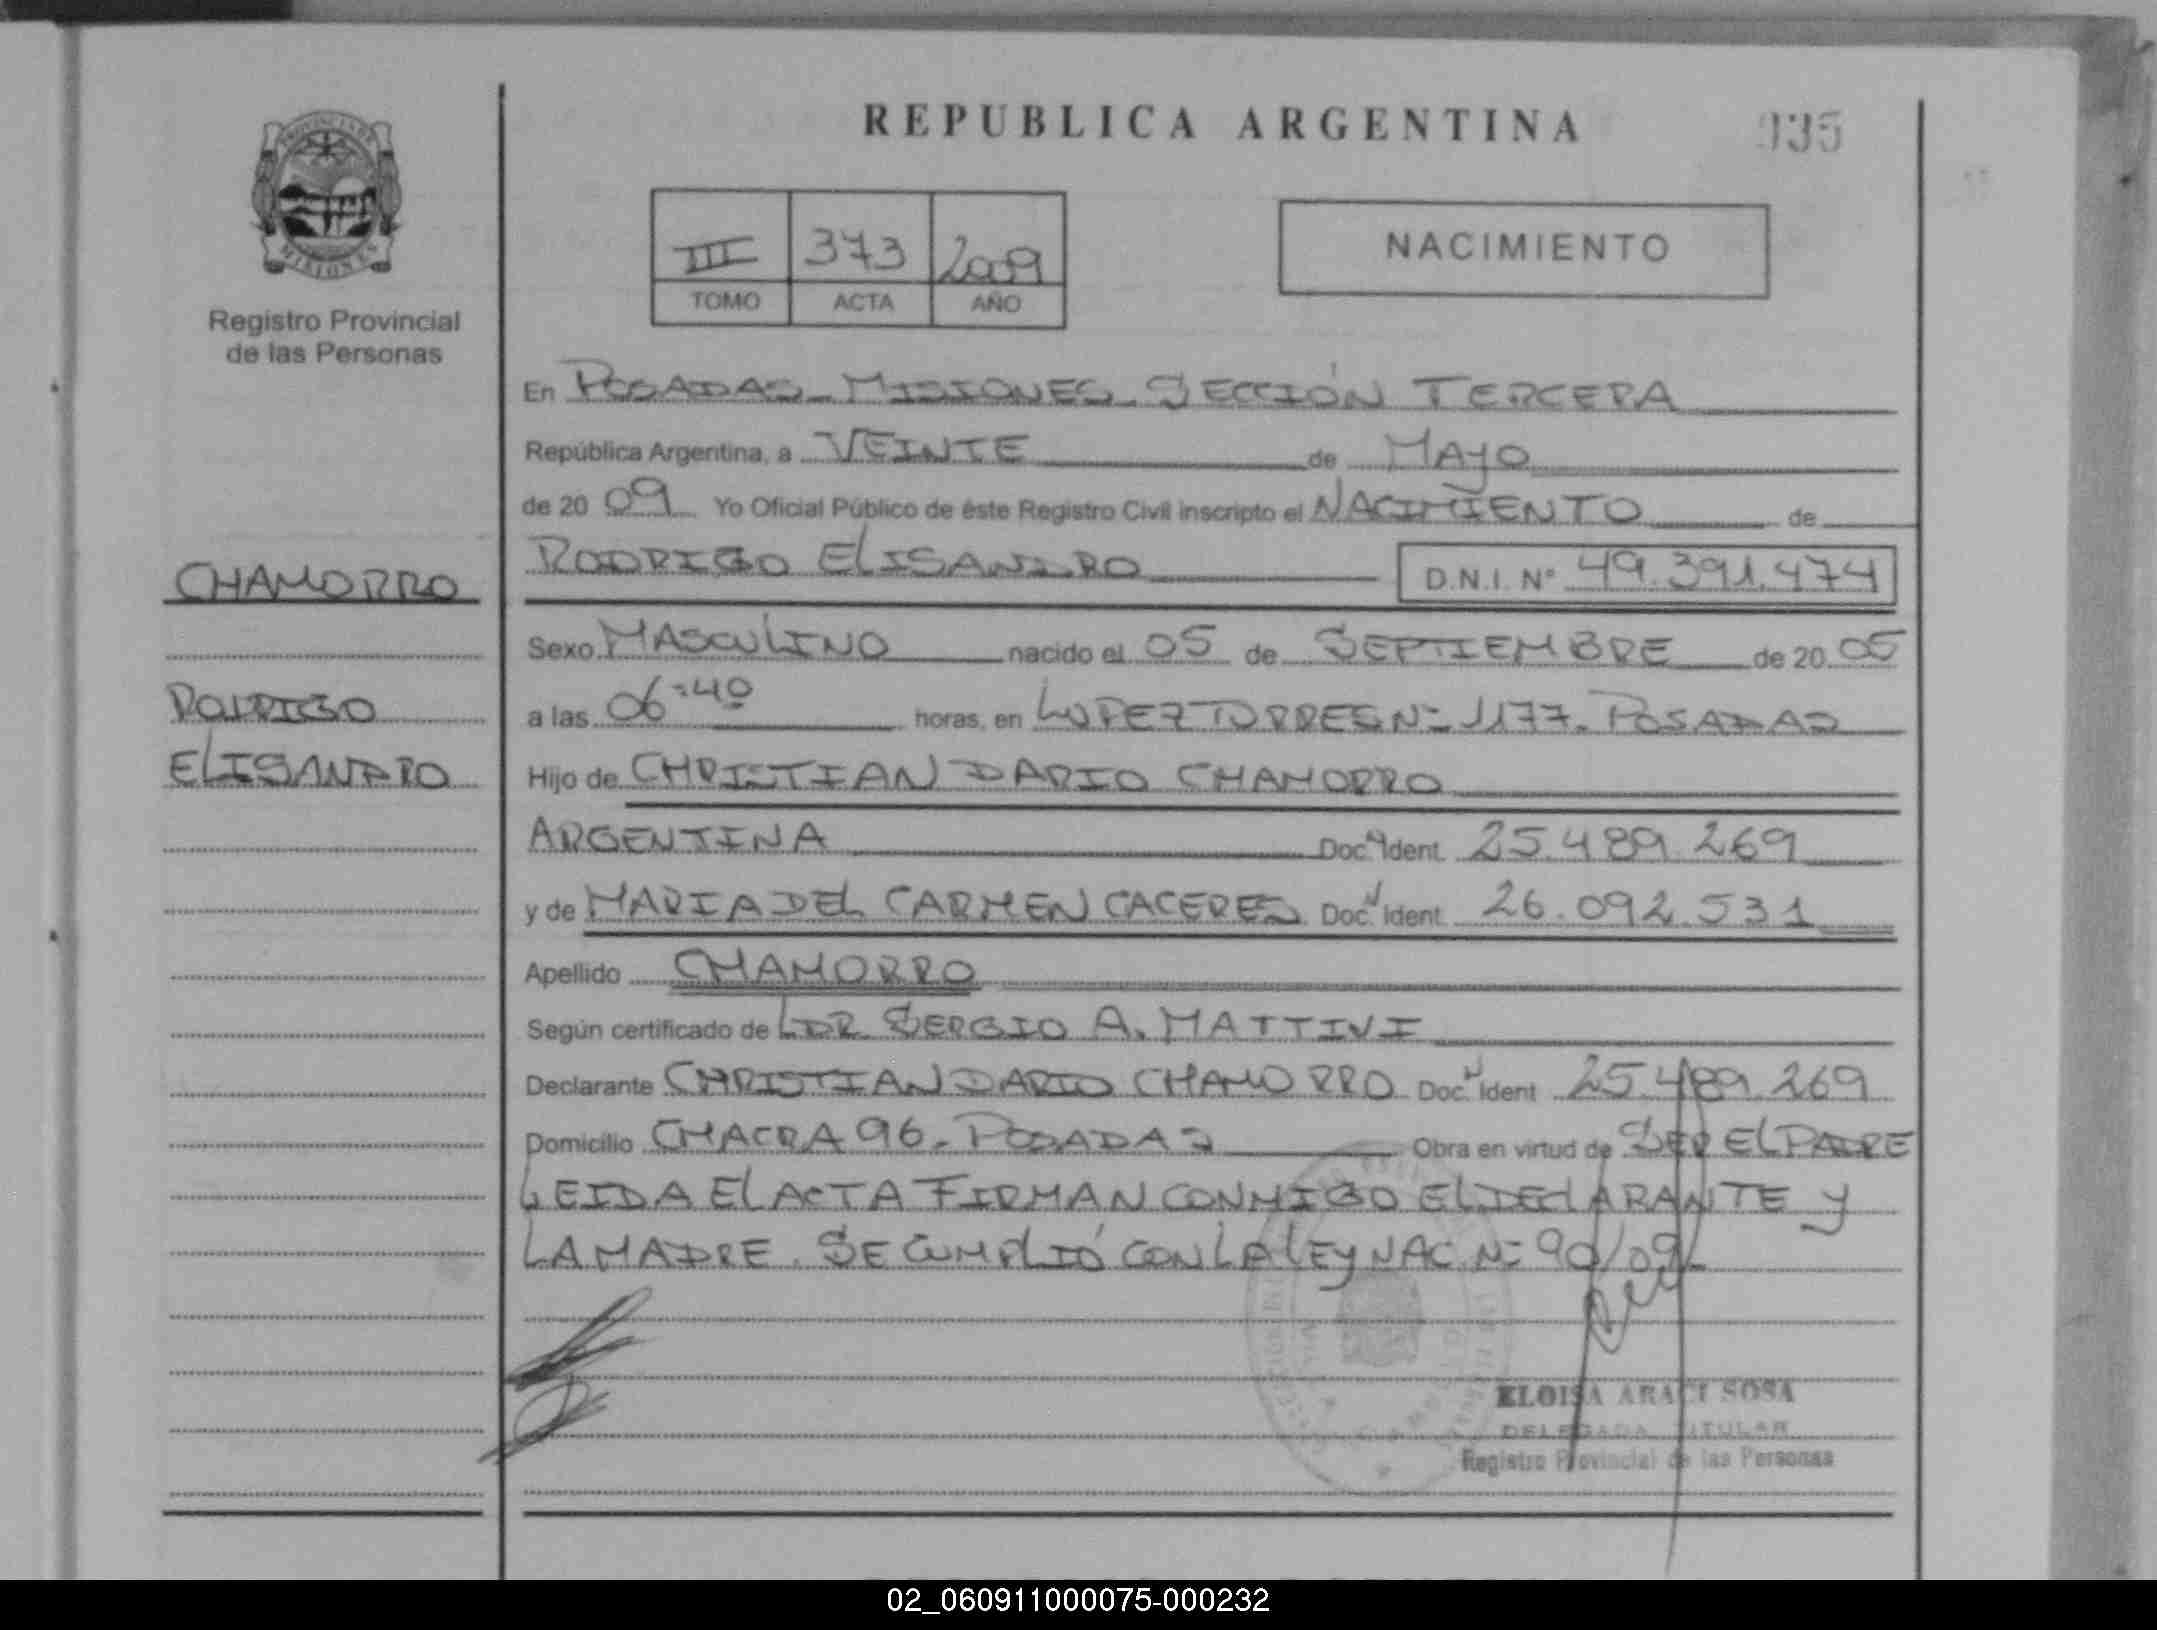 REPUBLICA ARGENTINA
935
PROVINCIA DE
MISIONES
Registro Provincial
de las Personas
III 373 2009
TOMO ACTA AÑO
NACIMIENTO
En POSADAS - MISIONES - SECCIÓN TERCERA
República Argentina, a VEINTE de MAYO
de 2009 Yo Oficial Público de éste Registro Civil inscripto el NACIMIENTO de
RODRIGO ELISANDRO D.N.I. Nº 49.391.474
CHAMORRO
RODRIGO
ELISANDRO
Sexo MASCULINO nacido el 05 de SEPTIEMBRE de 2005
a las 06:40 horas, en LOPEZ TORRES Nº 1177 - POSADAS
Hijo de CHRISTIAN DARIO CHAMORRO
ARGENTINA Doc. Ident. 25.489.269
y de MARIA DEL CARMEN CACERES Doc. Ident. 26.092.531
Apellido CHAMORRO
Según certificado de SERGIO A. MATTIVI
Declarante CHRISTIAN DARIO CHAMORRO Doc. Ident 25.489.269
Domicilio CHACRA 96 - POSADAS Obra en virtud de SER EL PADRE
LEIDA EL ACTA FIRMAN CONMIGO EL DECLARANTE Y
LA MADRE. SE CUMPLIÓ CON LA LEY NAC. Nº 90/09
ELOISA ARACI SOSA
DELEGADA TITULAR
Registro Provincial de las Personas
02_060911000075-000232